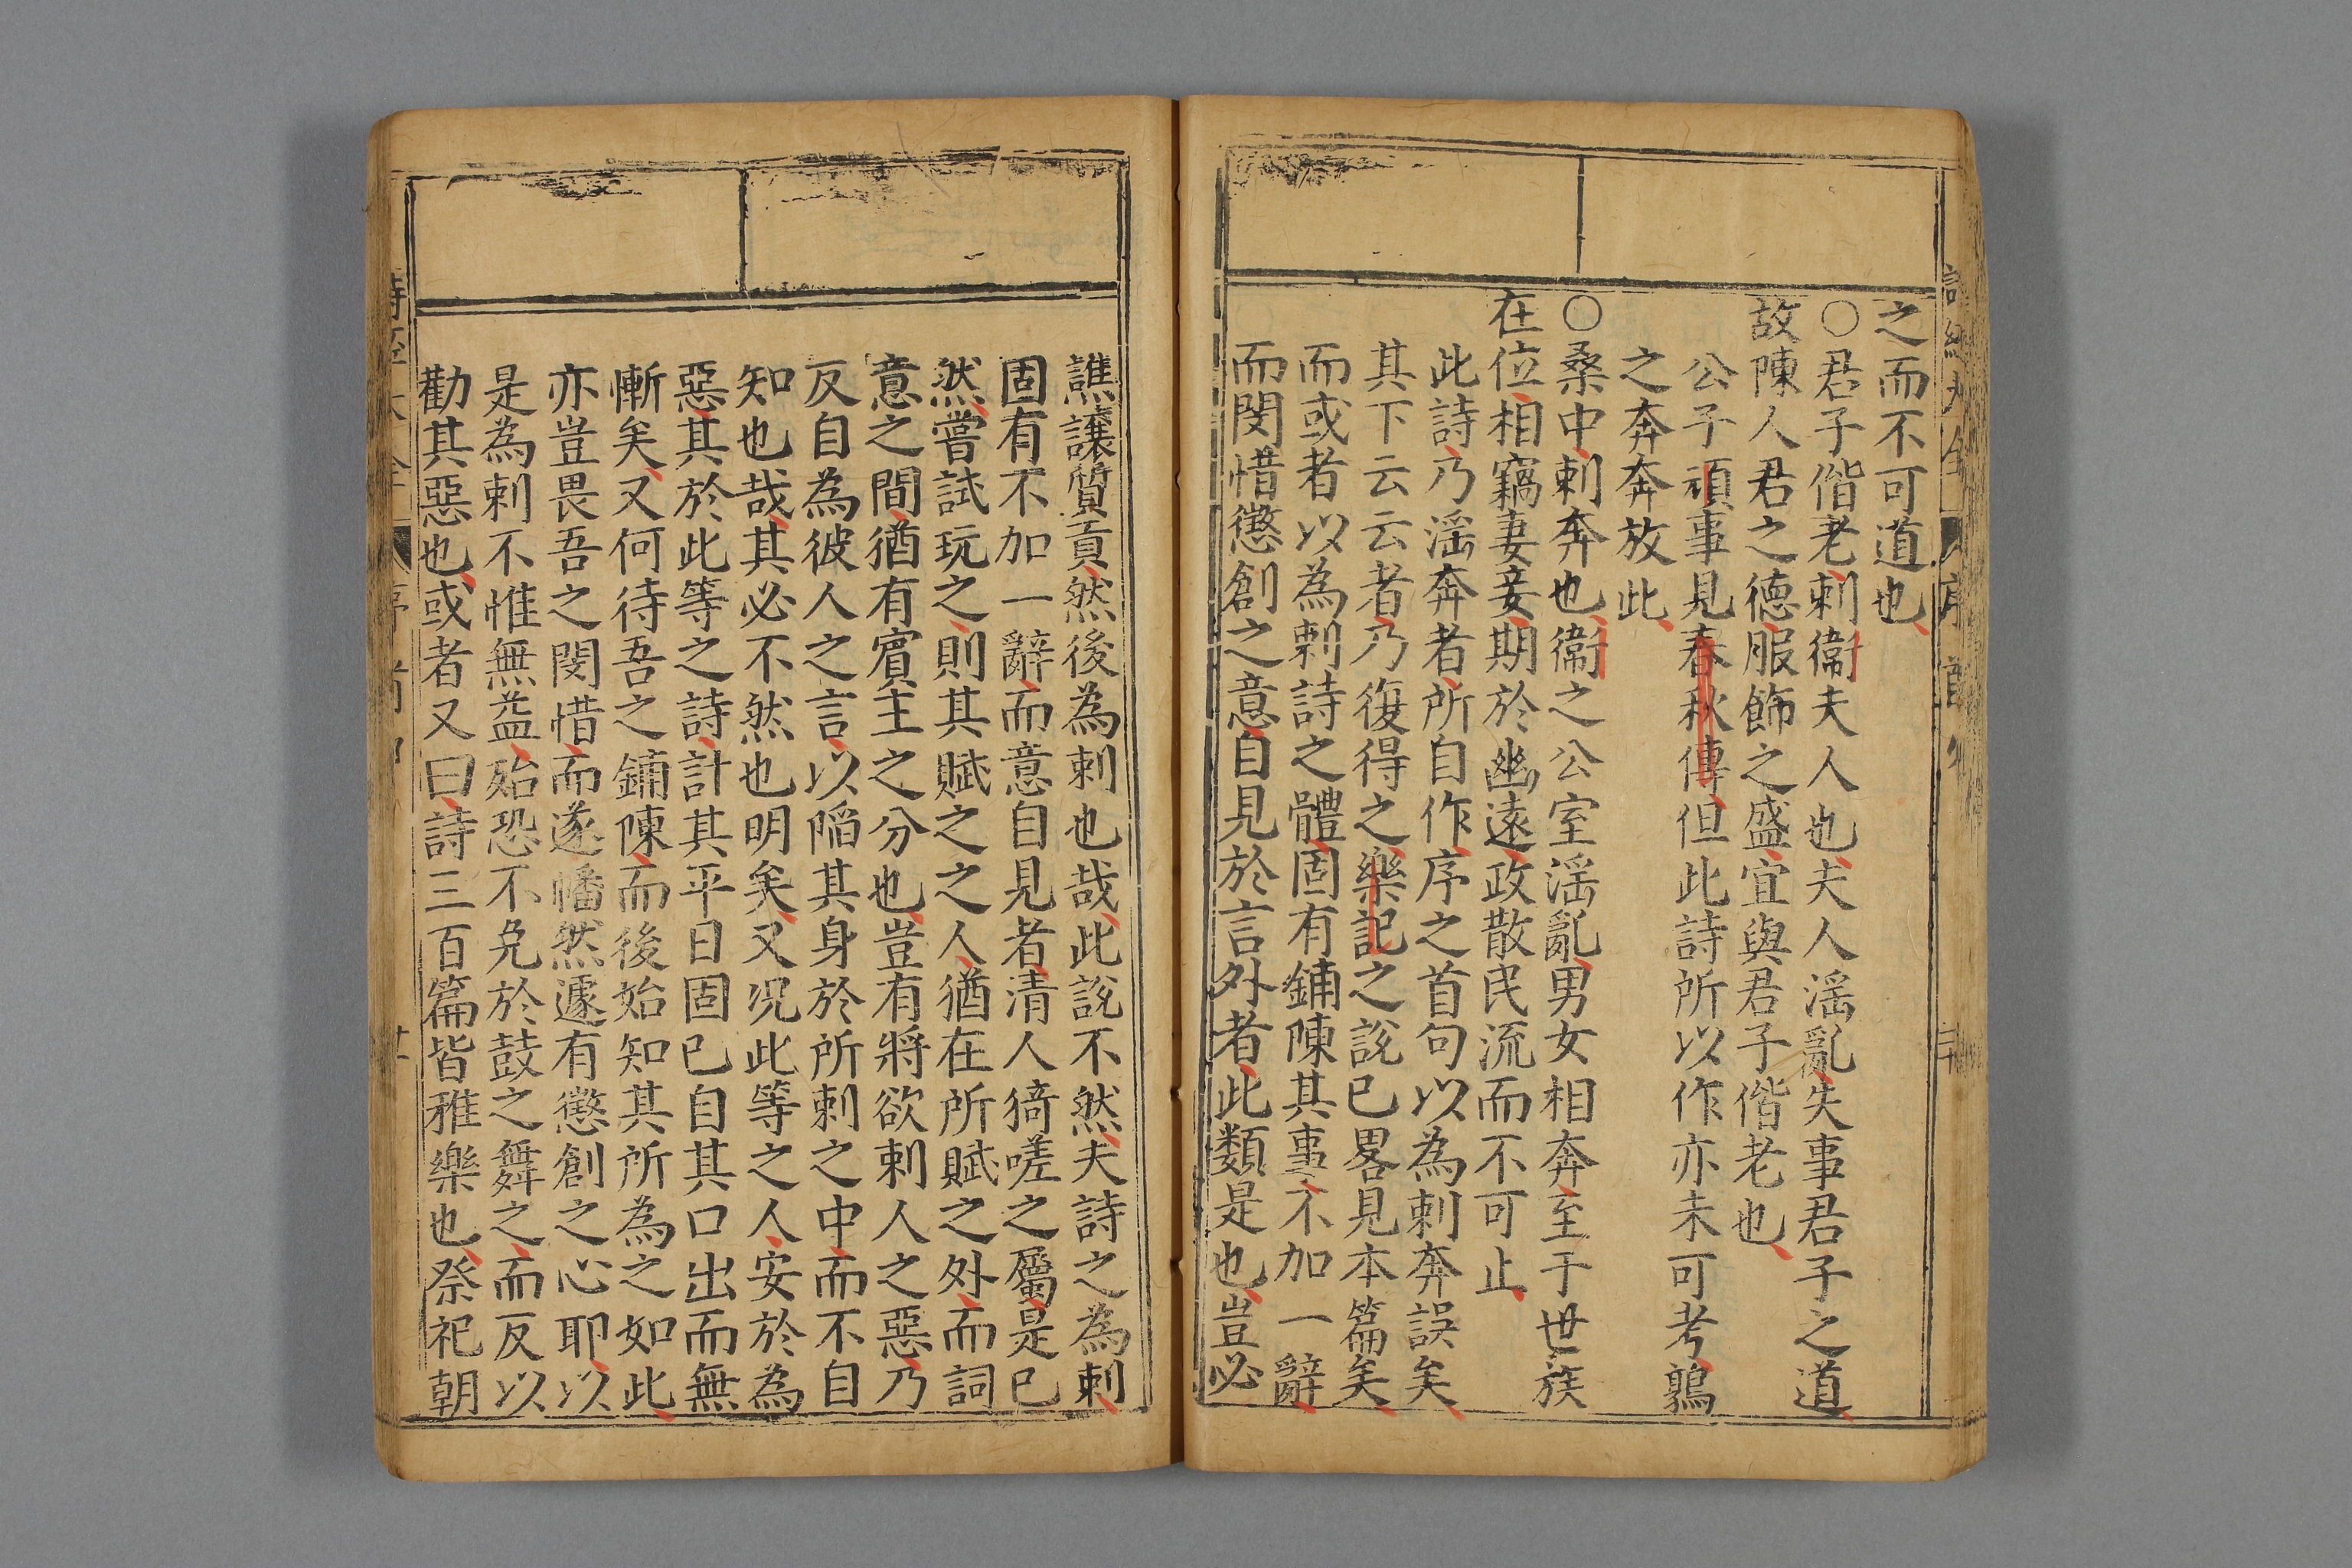 之而不可道也
○君子偕老刺衞夫人也夫人淫亂失事君子之道
故陳人君之德服飾之盛宜與君子偕老也
公子頑事見春秋傳但此詩所以作亦未可考鶉
之奔奔放此
○桑中刺奔也衞之公室淫亂男女相奔至于世族
在位相竊妻妾期於幽遠政散民流而不可止
此詩乃淫奔者所自作序之首句以為刺奔誤矣
其下云云者乃復得之樂記之說已畧見本篇矣
而或者以為刺詩之體固有鋪陳其事不加一辭
而閔惜懲創之意自見於言外者此類是也豈必
譙讓質責然後為刺也哉此說不然夫詩之為刺
固有不加一辭而意自見者清人猗嗟之屬是已
然嘗試玩之則其賦之之人猶在所賦之外而詞
意之間猶有賓主之分也豈有將欲刺人之惡乃
反自為彼人之言以陷其身於所刺之中而不自
知也哉其必不然也明矣又況此等之人安於為
惡其於此等之詩計其平日固已自其口出而無
慚矣又何待吾之鋪陳而後始知其所為之如此
亦豈畏吾之閔惜而遂幡然遽有懲創之心耶以
是為刺不惟無益殆恐不免於鼓之舞之而反以
勸其惡也或者又曰詩三百篇皆雅樂也祭祀朝